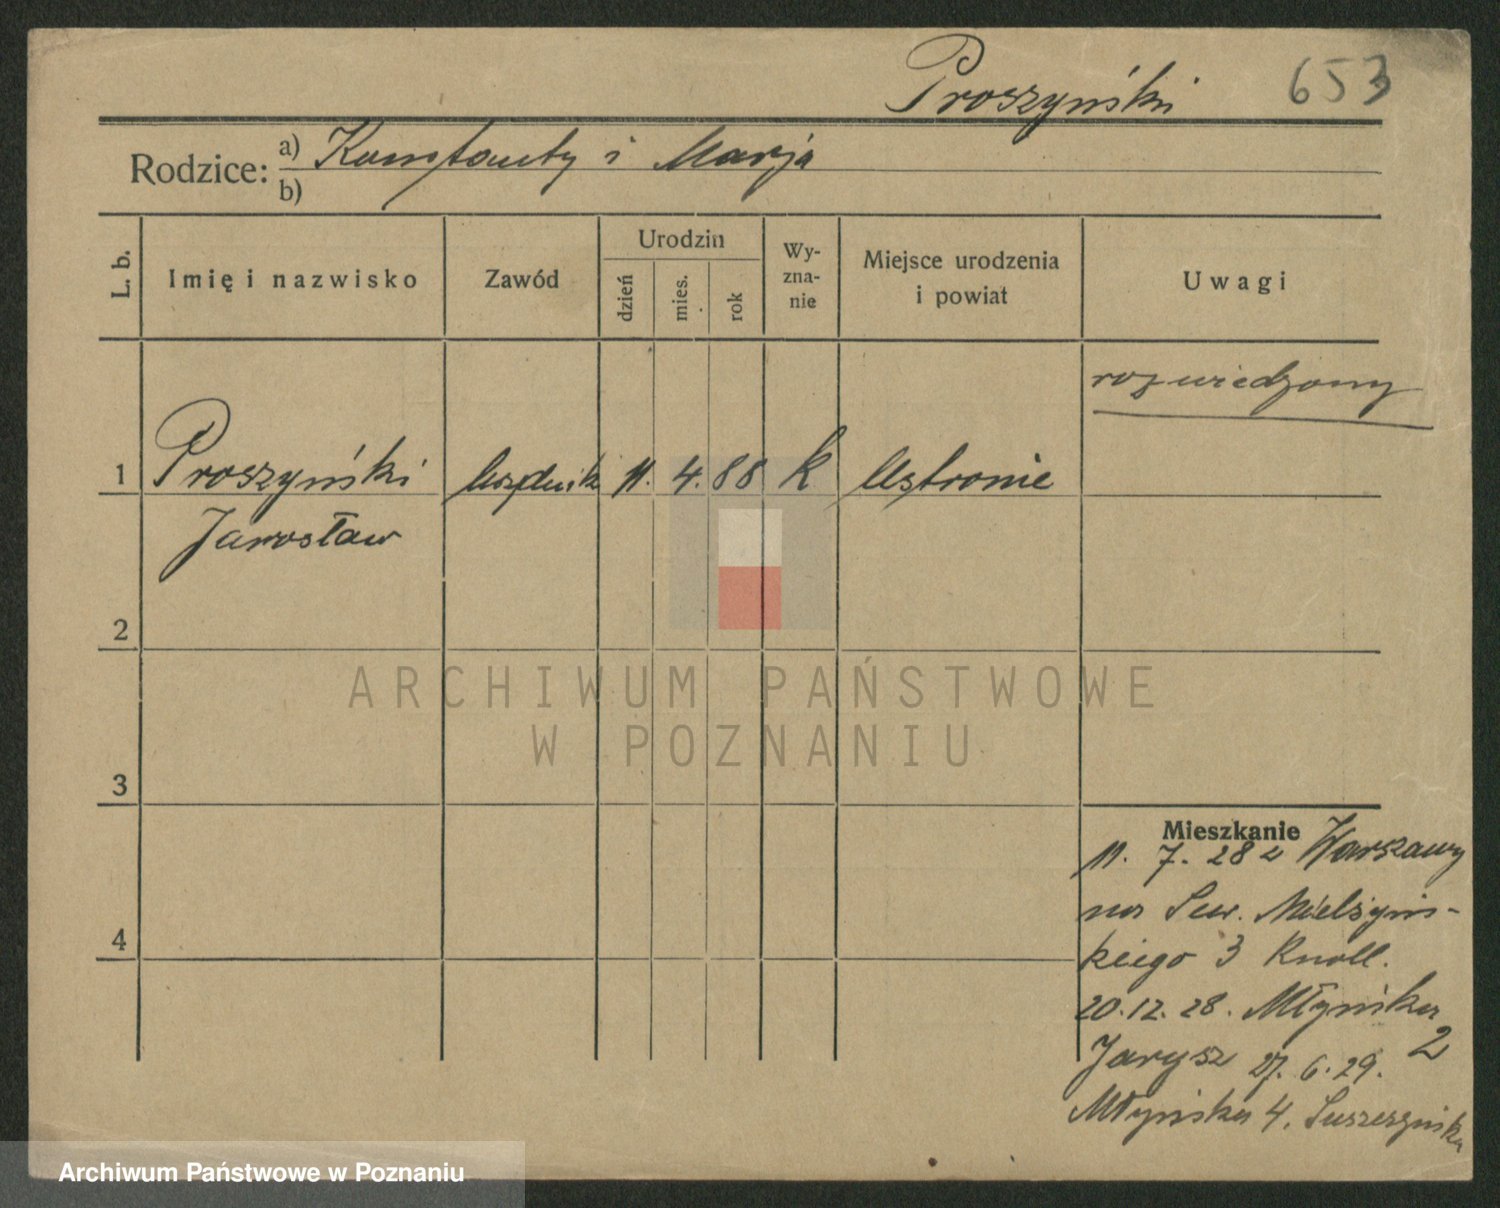 Proszyński 653
Rodzice: a) Konstanty i Marja
b)
L. b.
Imię i nazwisko
Zawód
Urodzin
dzień
mies.
rok
Wy-
zna-
nie
Miejsce urodzenia
i powiat
Uwagi
rozwiedzony
1 Proszyński urzędnik 11. 4. 88 k Ustronie
Jarosław
2
3
4
ARCHIWUM PAŃSTWOWE
W POZNANIU
Mieszkanie
11. 7. 28 z Warszawy
na Sew. Mielżyńs-
kiego 3 Knoll.
20.12.28. Młyńska
2
Jarysz 27. 6. 29.
Młyńska 4.
Archiwum Państwowe w Poznaniu